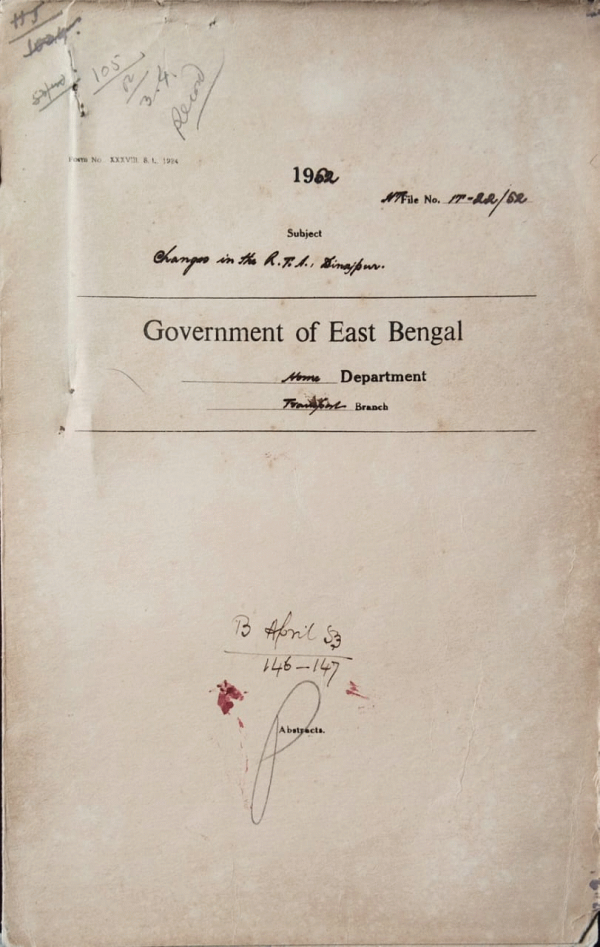 105
3.4.
Record
Form No. XXXVIII B. t. 1934
1952
File No. 1T-22/52
Subject
Changes in the R.T.A., Dinajpur.
Government of East Bengal
Home Department
Transport Branch
B April 53
146-147
Abstracts.